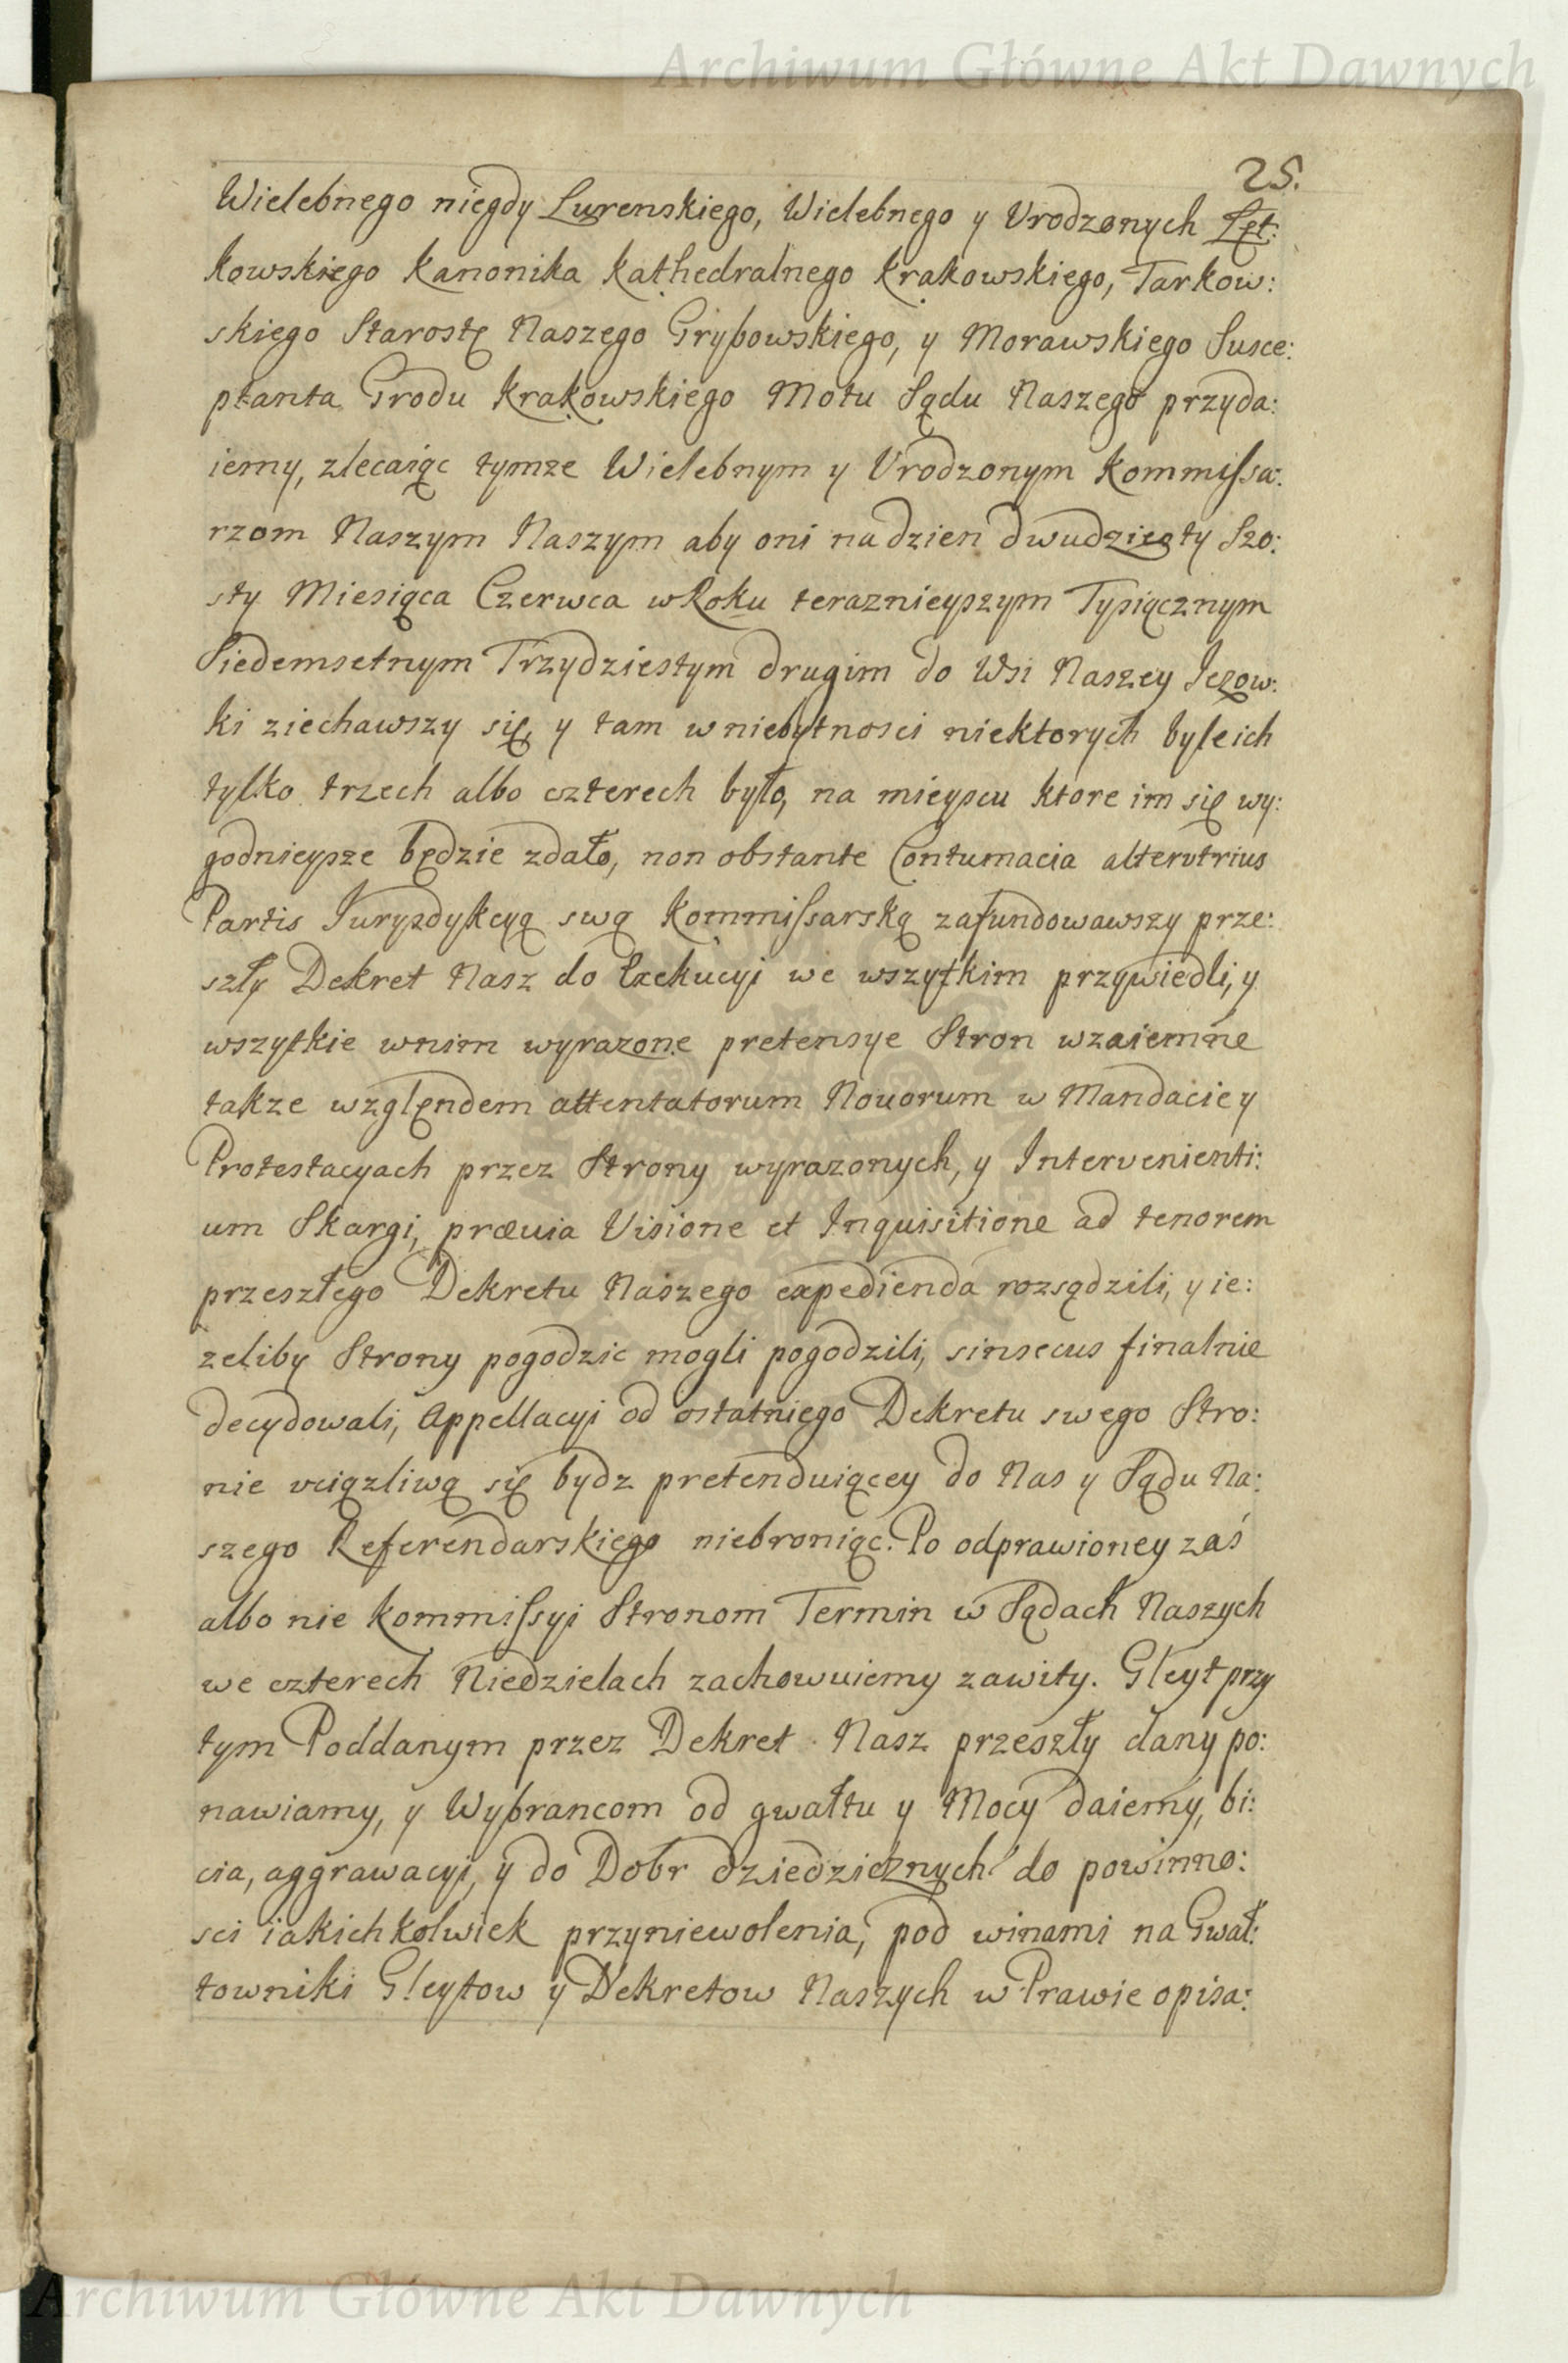 Archiwum Główne Akt Dawnych
25.
Wielebnego niegdy Lurenskiego, Wielebnego y Vrodzonych Łęt:
kowskiego Kanonika Kathedralnego Krakowskiego, Tarkow:
skiego Starostę Naszego Grybowskiego, y Morawskiego Susce:
ptanta Grodu Krakowskiego Motu Sądu Naszego przyda:
iemy, zlecaiąc tymze Wielebnym y Vrodzonym Kommissa:
rzom Naszym Naszym aby oni na dzien dwudziesty Szo:
sty Miesiąca Czerwca w Roku teraznieyszym Tysiącznym
Siedemsetnym Trzydziestym drugim do Wsi Naszey Jezow:
ki ziechawszy się, y tam w niebytnosci niektorych byle ich
tylko trzech albo czterech było, na mieyscu ktore im się wy:
godnieysze będzie zdało, non obstante Contumacia alterutrius
Partis Juryzdykcyą swą Kommissarską zafundowawszy prze:
szły Dekret Nasz do Exekucyi we wszytkim przywiedli, y
wszytkie w nim wyrazone pretensye Stron wzaiemne
takze względem attentatorum Nouorum w Mandacie y
Protestacyach przez Strony wyrazonych, y Intervenienti:
um Skargi, præuia Visione et Inquisitione ad tenorem
przeszłego Dekretu Naszego expedienda rozsądzili, y ie:
zeliby Strony pogodzic mogli pogodzili, sinsecus finalnie
decydowali, Appellacyi od ostatniego Dekretu swego Stro:
nie vciązliwą się bydz pretenduiącey do Nas y Sądu Na:
szego Referendarskiego niebroniąc. Po odprawioney zaś
albo nie Kommissyi Stronom Termin w Sądach Naszych
we czterech Niedzielach zachowuiemy zawity. Gleyt przy
tym Poddanym przez Dekret Nasz przeszły dany po:
nawiamy, y Wybrancom od gwałtu y Mocy daiemy, bi:
cia, aggrawacyi, y do Dobr dziedzicznych do powinno:
sci iakichkolwiek przyniewolenia, pod winami na Gwał:
towniki Gleytow y Dekretow Naszych w Prawie opisa:
Archiwum Główne Akt Dawnych